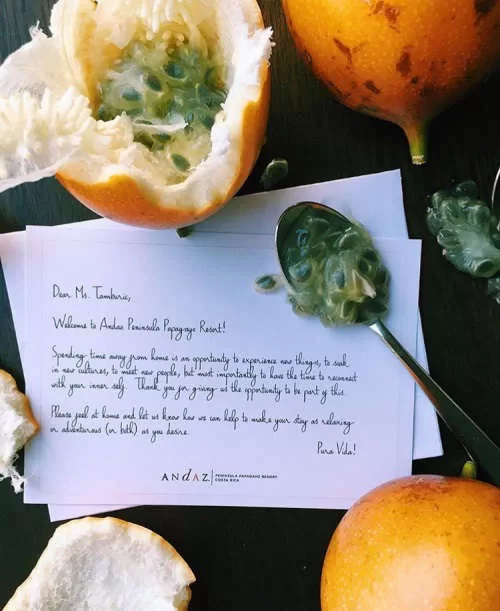 Dear Ms. Tamburie,
Welcome to Andaz Peninsula Papagayo Resort!
Spending time away from home is an opportunity to experience new things, to soak
in new cultures, to meet new people, but most importantly to have the time to reconnect
with your inner self. Thank you for giving us the opportunity to be part of this.
Please feel at home and let us know how we can help to make your stay as relaxing
or adventurous (or both) as you desire.
Pura Vida!
ANdAZ PENINSULA PAPAGAYO RESORT
COSTA RICA